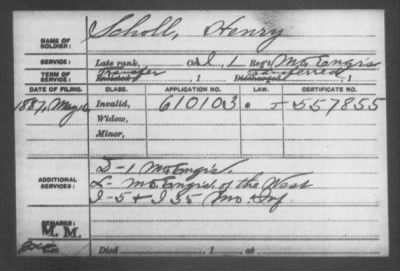 NAME OF SOLDIER: Scholl, Henry
SERVICE: Late rank, Co. I, 1 Reg't Mo Eng'rs
TERM OF SERVICE: Enlisted Transfer, 1 Discharged Transferred, 1
DATE OF FILING. CLASS. APPLICATION NO. LAW. CERTIFICATE NO.
1887, May 16 Invalid, 610103 557855
Widow,
Minor,
D-1 Mo Eng'rs.
ADDITIONAL SERVICES: Mo Eng'rs. of the West
I-5 & I 35 Mo. Inf.
REMARKS:
M. M.
Died , 1 , at